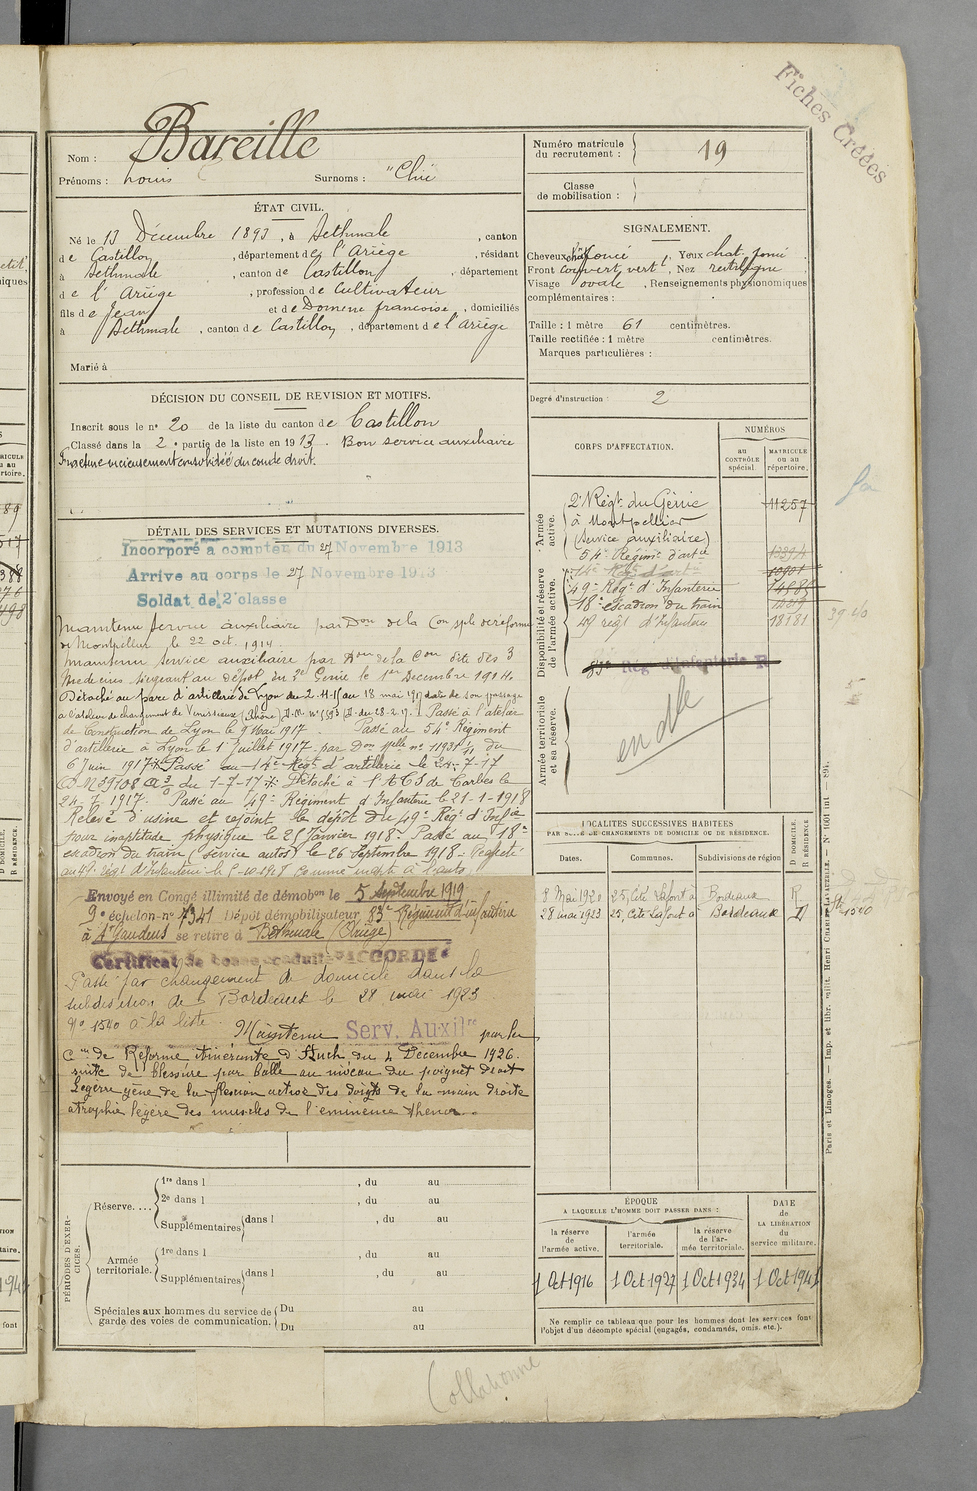 Fiches Créées
Nom : Bareille
Prénoms : Louis Surnoms : "Chïï"
Numéro matricule du recrutement : 19
Classe de mobilisation :
ÉTAT CIVIL.
Né le 13 Décembre 1893, à Bethmale, canton
de Castillon, département de l'Ariège, résidant
à Bethmale, canton de Castillon, département
de l'Ariège, profession de Cultivateur
fils de Jean et de Domenc françoise, domiciliés
à Bethmale, canton de Castillon, département de l'Ariège
Marié à
SIGNALEMENT.
Cheveux chat foncé, Yeux chat
Front couvert, vert, Nez rectiligne
Visage ovale, Renseignements physionomiques
complémentaires :
Taille : 1 mètre 61 centimètres.
Taille rectifiée : 1 mètre centimètres.
Marques particulières :
Degré d'instruction : 2
DÉCISION DU CONSEIL DE REVISION ET MOTIFS.
Inscrit sous le n° 20 de la liste du canton de Castillon
Classé dans la 2e partie de la liste en 1913. Bon service auxiliaire
Fracture vicieusement consolidée du coude droit.
CORPS D'AFFECTATION.
NUMÉROS
au CONTRÔLE spécial.
MATRICULE ou au répertoire.
Armée active.
2e Régt. du Génie 11257
à Montpellier
(Service auxiliaire)
54e Régimt d'artie
Disponibilité et réserve de l'armée active.
14e Régt d'artie
49e Régt d'Infanterie
18e escadron du train
49 régt d'Infanterie 18181
83e Rég d'Infanterie R
39-40
Armée territoriale et sa réserve.
DÉTAIL DES SERVICES ET MUTATIONS DIVERSES.
Incorporé à compter du 27 Novembre 1913
Arrivé au corps le 27 Novembre 1913
Soldat de 2e classe
Maintenu service auxiliaire par Don de la Con sple de réforme
de Montpellier le 22 oct. 1914.
Maintenu service auxiliaire par Don de la Con dite des 3
Médecins siégeant au dépôt du 2e Génie le 1er Décembre 1914.
Détaché au parc d'artillerie de Lyon du 2-11-15 au 18 mai 1917 date de son passage
à l'atelier de chargement de Vénissieux (Rhône) Passé à l'atelier
de construction de Lyon le 9 Mai 1917. Passé au 54e Régiment
d'artillerie à Lyon le 1er Juillet 1917 par Don splle n° 11931 du
6 Juin 1917. Passé au 14e Régt d'artillerie le 24-7-17
du 1-7-17. Détaché à l'ACS de Tarbes le
24-7-1917. Passé au 49e Régiment d'Infanterie le 21-1-1918
Relevé d'usine et rejoint le dépôt du 49e Régt d'Infie
pour inaptitude physique le 25 Janvier 1918. Passé au 18e
escadron du train (service autos) le 26 Septembre 1918.
au 49e régt d'Infanterie le comme inapte à l'auto.
Envoyé en Congé illimité de démobon le 5 Septembre 1919
9e échelon-n° 7341 Dépôt démobilisateur 83e Régiment d'infanterie
à St Gaudens se retire à Bethmale (Ariège)
Certificat de bonne conduite "ACCORDÉ"
Passé par changement de domicile dans la
subdivision de Bordeaux le 28 mai 1923
N° 1540 à la liste.
Maintenu Serv. Auxilre par la
Con de Réforme itinérante d'Auch du 4 Décembre 1926.
suite de blessure par balle au niveau du poignet droit
Légère gêne de la flexion active des doigts de la main droite
atrophie légère des muscles de l'éminence thénar.
LOCALITÉS SUCCESSIVES HABITÉES
PAR SUITE DE CHANGEMENTS DE DOMICILE OU DE RÉSIDENCE.
Dates. Communes. Subdivisions de région D DOMICILE. R RÉSIDENCE.
8 Mai 1920 25, Cité Lafont à Bordeaux R
28 mai 1923 25, Cité Lafont à Bordeaux D
1540
PÉRIODES D'EXERCICES.
Réserve....
1re dans l , du au
2e dans l , du au
Supplémentaires dans l , du au
Armée territoriale.
1re dans l , du au
Supplémentaires dans l , du au
Spéciales aux hommes du service de garde des voies de communication.
Du au
Du au
ÉPOQUE
A LAQUELLE L'HOMME DOIT PASSER DANS :
la réserve de l'armée active.
l'armée territoriale.
la réserve de l'armée territoriale.
DATE de LA LIBÉRATION du service militaire.
1 Oct 1916 1 Oct 1927 1 Oct 1934 1 Oct 1941
Ne remplir ce tableau que pour les hommes dont les services font
l'objet d'un décompte spécial (engagés, condamnés, omis, etc.).
Paris et Limoges. — Imp. et libr. milit. Henri CHARLES-LAVAUZELLE.
Collationné